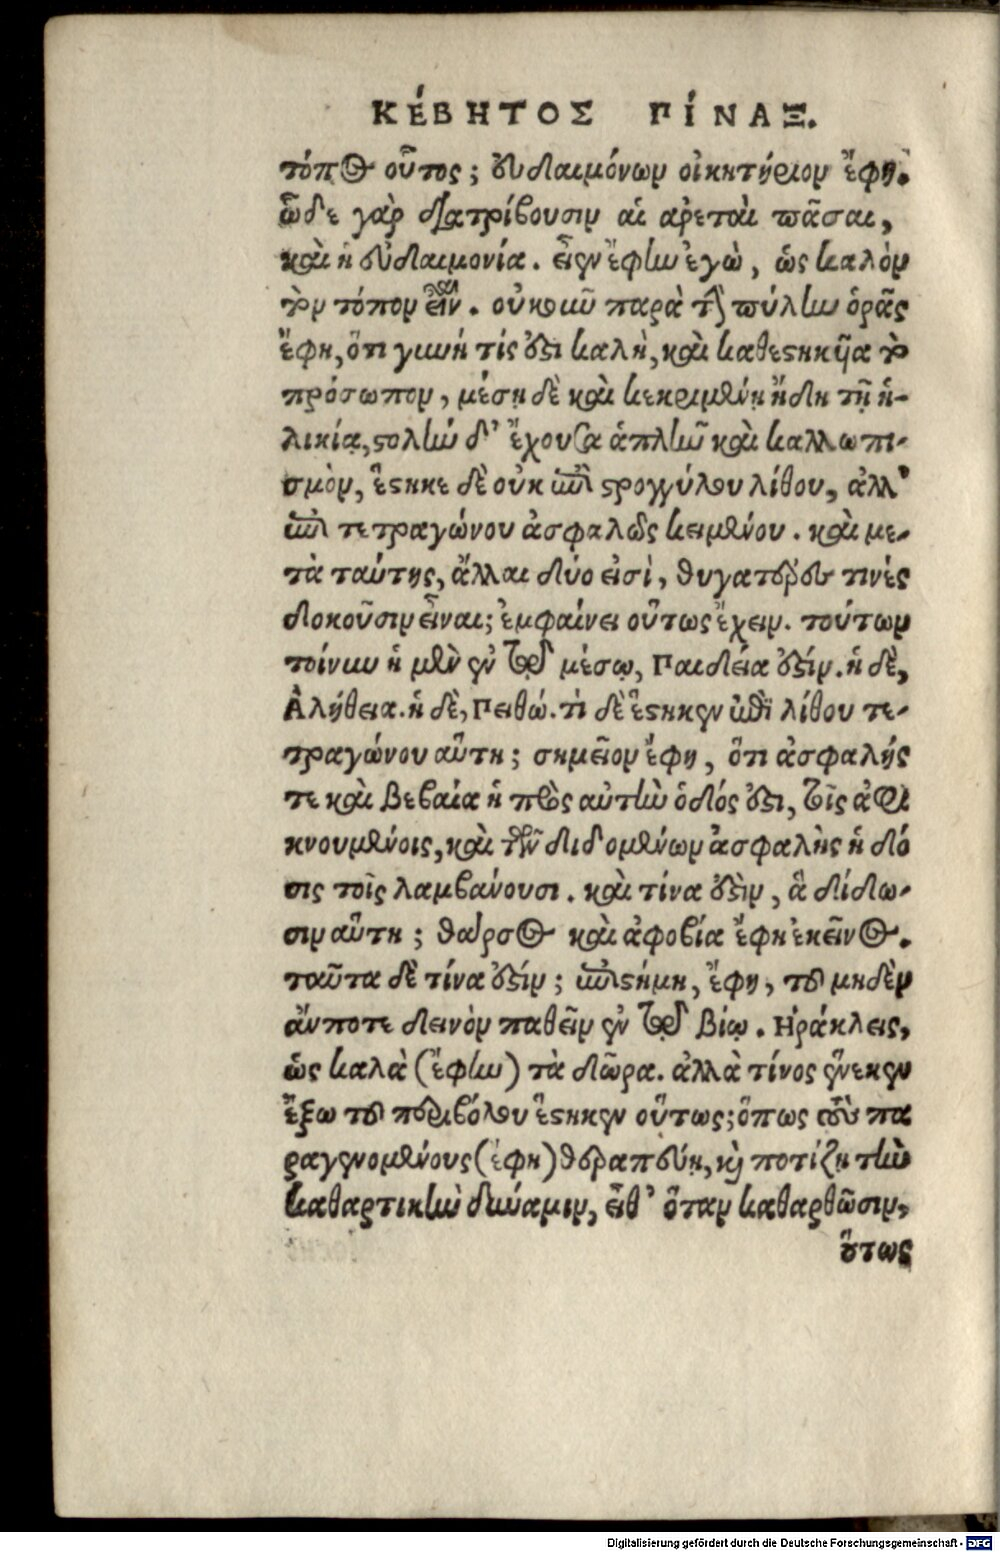 ΚΈΒΗΤΟΣ ΠΊΝΑΞ.
τόπος οὗτος; εὐδαιμόνων οἰκητήριον ἔφη.
ὧδε γὰρ διατρίβουσιν αἱ ἀρεταὶ πᾶσαι,
καὶ ἡ εὐδαιμονία. εἶεν ἔφην ἐγὼ, ὡς καλὸν
τὸν τόπον λέγεις εἶναι. οὐκοῦν παρὰ τὴν πύλην ὁρᾷς
ἔφη, ὅτι γυνή τίς ἐστι καλὴ, καὶ καθεστηκυῖα τὸ
πρόσωπον, μέσῃ δὲ καὶ κεκριμένῃ ἤδη τῇ ἡ-
λικίᾳ, στολὴν δ' ἔχουσα ἁπλῆν καὶ καλλωπι-
σμὸν, ἕστηκε δὲ οὐκ ἐπὶ στρογγύλου λίθου, ἀλλ'
ἐπὶ τετραγώνου ἀσφαλῶς κειμένου. καὶ με-
τὰ ταύτης, ἄλλαι δύο εἰσὶ, θυγατέρες τινὲς
δοκοῦσιν εἶναι; ἐμφαίνει οὕτως ἔχειν. τούτων
τοίνυν ἡ μὲν ἐν τῷ μέσῳ, Παιδεία ἐστίν. ἡ δὲ,
Ἀλήθεια. ἡ δὲ, Πειθώ. τί δὲ ἕστηκεν ἐπὶ λίθου τε-
τραγώνου αὕτη; σημεῖον ἔφη, ὅτι ἀσφαλής
τε καὶ βεβαία ἡ πρὸς αὐτὴν ὁδός ἐστι, τοῖς ἀφι
κνουμένοις, καὶ τῶν διδομένων ἀσφαλὴς ἡ δό
σις τοῖς λαμβάνουσι. καὶ τίνα ἐστὶν, ἃ δίδω-
σιν αὕτη; θάρσος καὶ ἀφοβία ἔφη ἐκεῖνος.
ταῦτα δὲ τίνα ἐστίν; ἐπιστήμη, ἔφη, τοῦ μηδὲν
ἄν ποτε δεινὸν παθεῖν ἐν τῷ βίῳ. Ἡράκλεις,
ὡς καλὰ (ἔφην) τὰ δῶρα. ἀλλὰ τίνος ἕνεκεν
ἔξω τοῦ περιβόλου ἕστηκεν οὕτως; ὅπως τοὺς πα
ραγενομένους (ἔφη) θεραπεύῃ, καὶ ποτίζῃ τὴν
καθαρτικὴν δύναμιν, εἶθ' ὅταν καθαρθῶσιν,
οὕτως
Digitalisierung gefördert durch die Deutsche Forschungsgemeinschaft - DFG